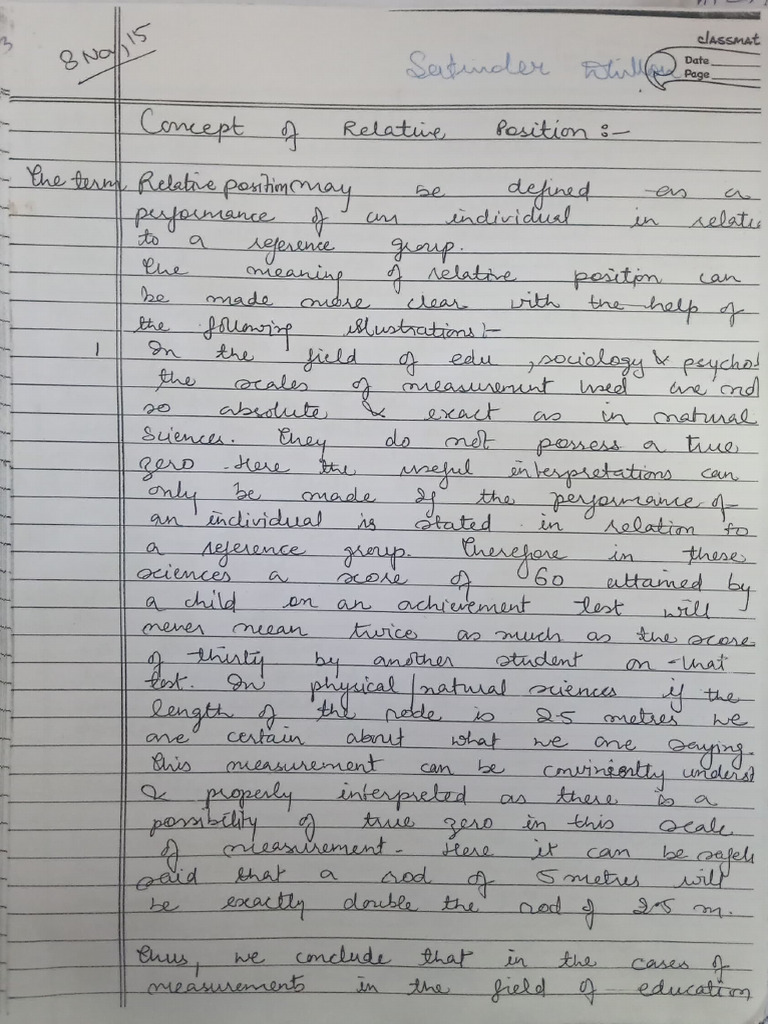 8 Nov, 15
classmat
Date
Page
Satinder Dhillon
Concept of Relative Position :-
the term Relative position may be defined as a
performance of an individual in relati
to a reference group.
The meaning of relative position can
be made more clear with the help of
the following illustrations:-
1 In the field of edu, sociology & psychol
the scales of measurement used are not
so absolute & exact as in natural
Sciences. They do not possess a true
zero. Here the useful interpretations can
only be made If the performance of
an individual is stated in relation to
a reference group. Therefore in these
sciences a score of 60 attained by
a child on an achievement test will
never mean twice as much as the score
of thirty by another student on that
test. In physical/natural sciences if the
length of the rode is 25 metres we
are certain about what we are saying.
This measurement can be conviniently underst
& properly interpreted as there is a
possibility of true zero in this scale
of measurement. Here it can be safel
said that a rod of 5 metres will
be exactly double the rod of 2.5 m.
Thus, we conclude that in the cases of
measurements in the field of education